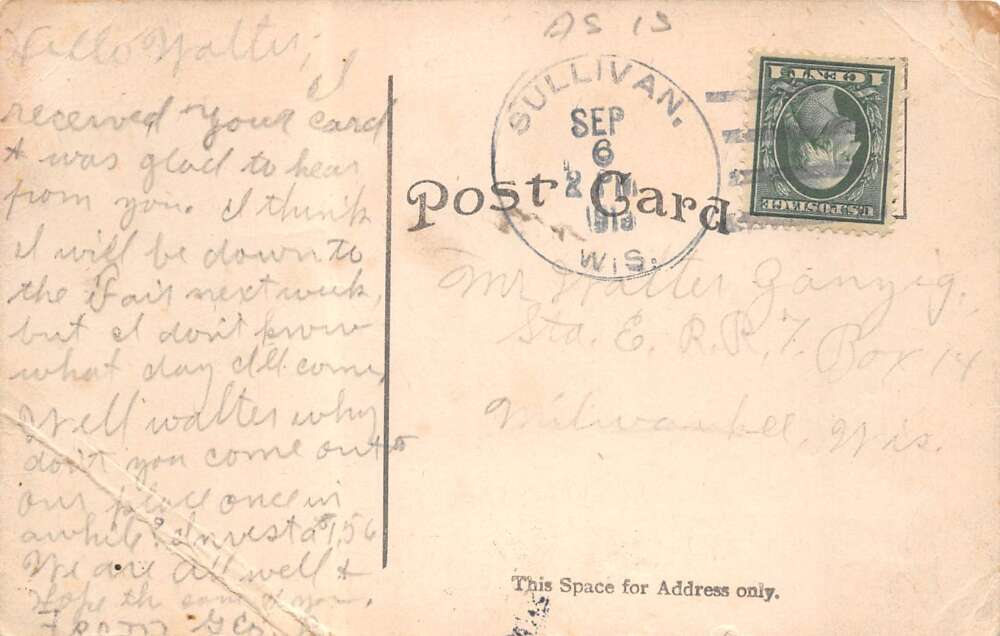 Hello Walter,
I
received your card
& was glad to hear
from you. I think
I will be down to
the Fair next week,
but I don't know
what day Ill come,
Well walter why
don't you come out to
our place once in
awhile? Invest a $1,56
We are all well &
hope the same of you.
From Geo.
AS IS
SULLIVAN.
SEP
6
2 PM
WIS.
Post Card
ONE 1
U.S. POSTAGE
Mr Walter Ganzig,
Sta. E. R.R. 7. Box 14
Milwaukee, Wis.
This Space for Address only.